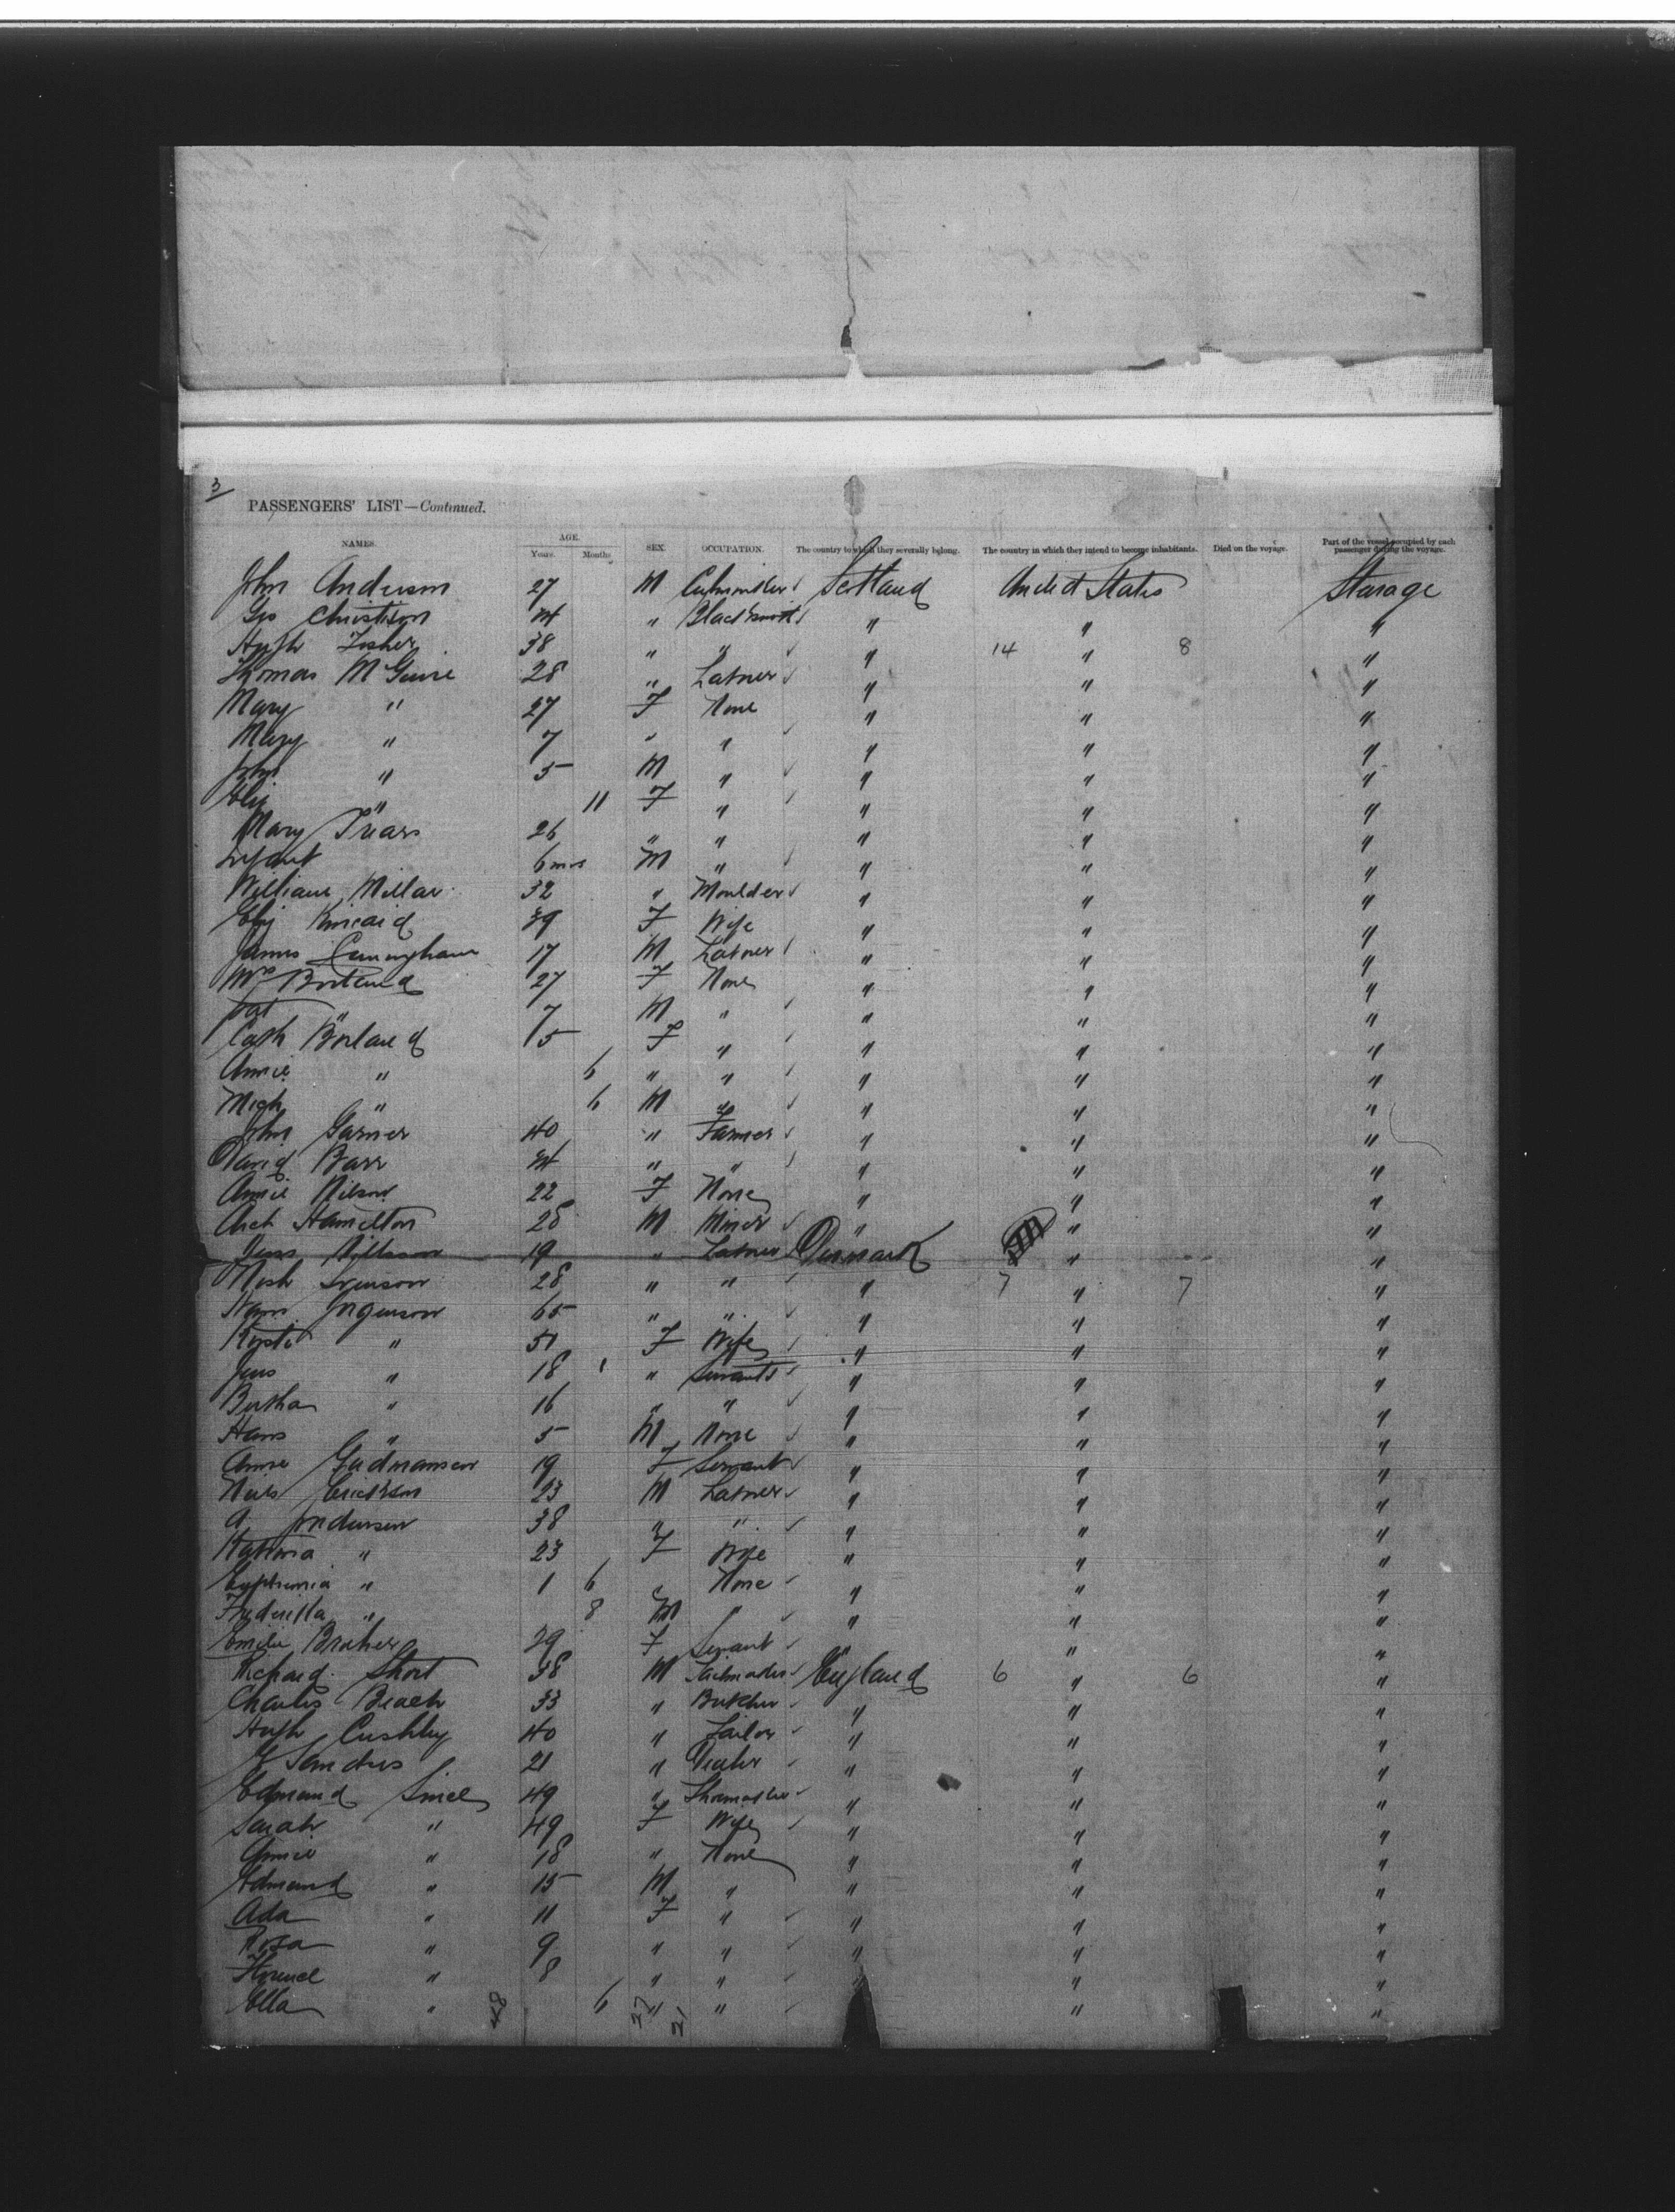 3
PASSENGERS' LIST—Continued.
NAMES. AGE. Years. Months SEX. OCCUPATION. The country to which they severally belong. The country in which they intend to become inhabitants. Died on the voyage. Part of the vessel occupied by each passenger during the voyage.
John Anderson 27 M Scotland United States Starage
Geo Christison " Blacksmith " " "
Hugh Fisher 38 " " " 14 " 8 "
Thomas McGuire 28 " Labner " " "
Mary " 27 F None " " "
Mary " 7 " " " " "
John " 5 M " " " "
Eliz " 11 F " " " "
Mary Friars 26 " " " " "
Infant 6 mos M " " " "
William Millar 32 " Moulder " " "
Eliz Kincaid 39 F Wife " " "
James Cunningham 17 M Labner " " "
Mrs Borland 27 F None " " "
Pat " 7 M " " " "
Cath Borland 5 F " " " "
Annie " 6 " " " " "
Mich " 6 M do " " "
John Garner 40 " Farmer " " "
David Barr " " " " "
Annie Nilson 22 F None " " "
Arch Hamilton 28 M Miner " " "
Jens Nillsson 19 " Labner Denmark " "
Svenson 28 " " " 7 " 7 "
Hans Jorgenson 65 " " " " "
" 51 F Wife " " "
Jens " 18 " Servants " " "
Bertha " 16 " " " " "
Hans " 5 M None " " "
Anne Gudmansen 19 F Servant " " "
Nels Erickson 23 M Labner " " "
A. Andersen 38 " " " " "
Katrina " 23 F Wife " " "
Euphemia " 1 6 " None " " "
" 8 M " " " "
Emilie 29 F Servant " " "
Richard Short 38 M Sailmaker England 6 " 6 "
Charles Beach 33 " Butcher " " "
Hugh Cushley 40 " Tailor " " "
G Sanders 21 " Dealer " " "
Edmund 49 " Shoemaker " " "
Sarah " 49 F Wife " " "
Annie " 18 " None " " "
Edmund " 15 M " " " "
Ada " 11 F " " " "
Rosa " 9 " " " " "
Florence " 8 " " " " "
Ella " 6 " " " "
48 27 21